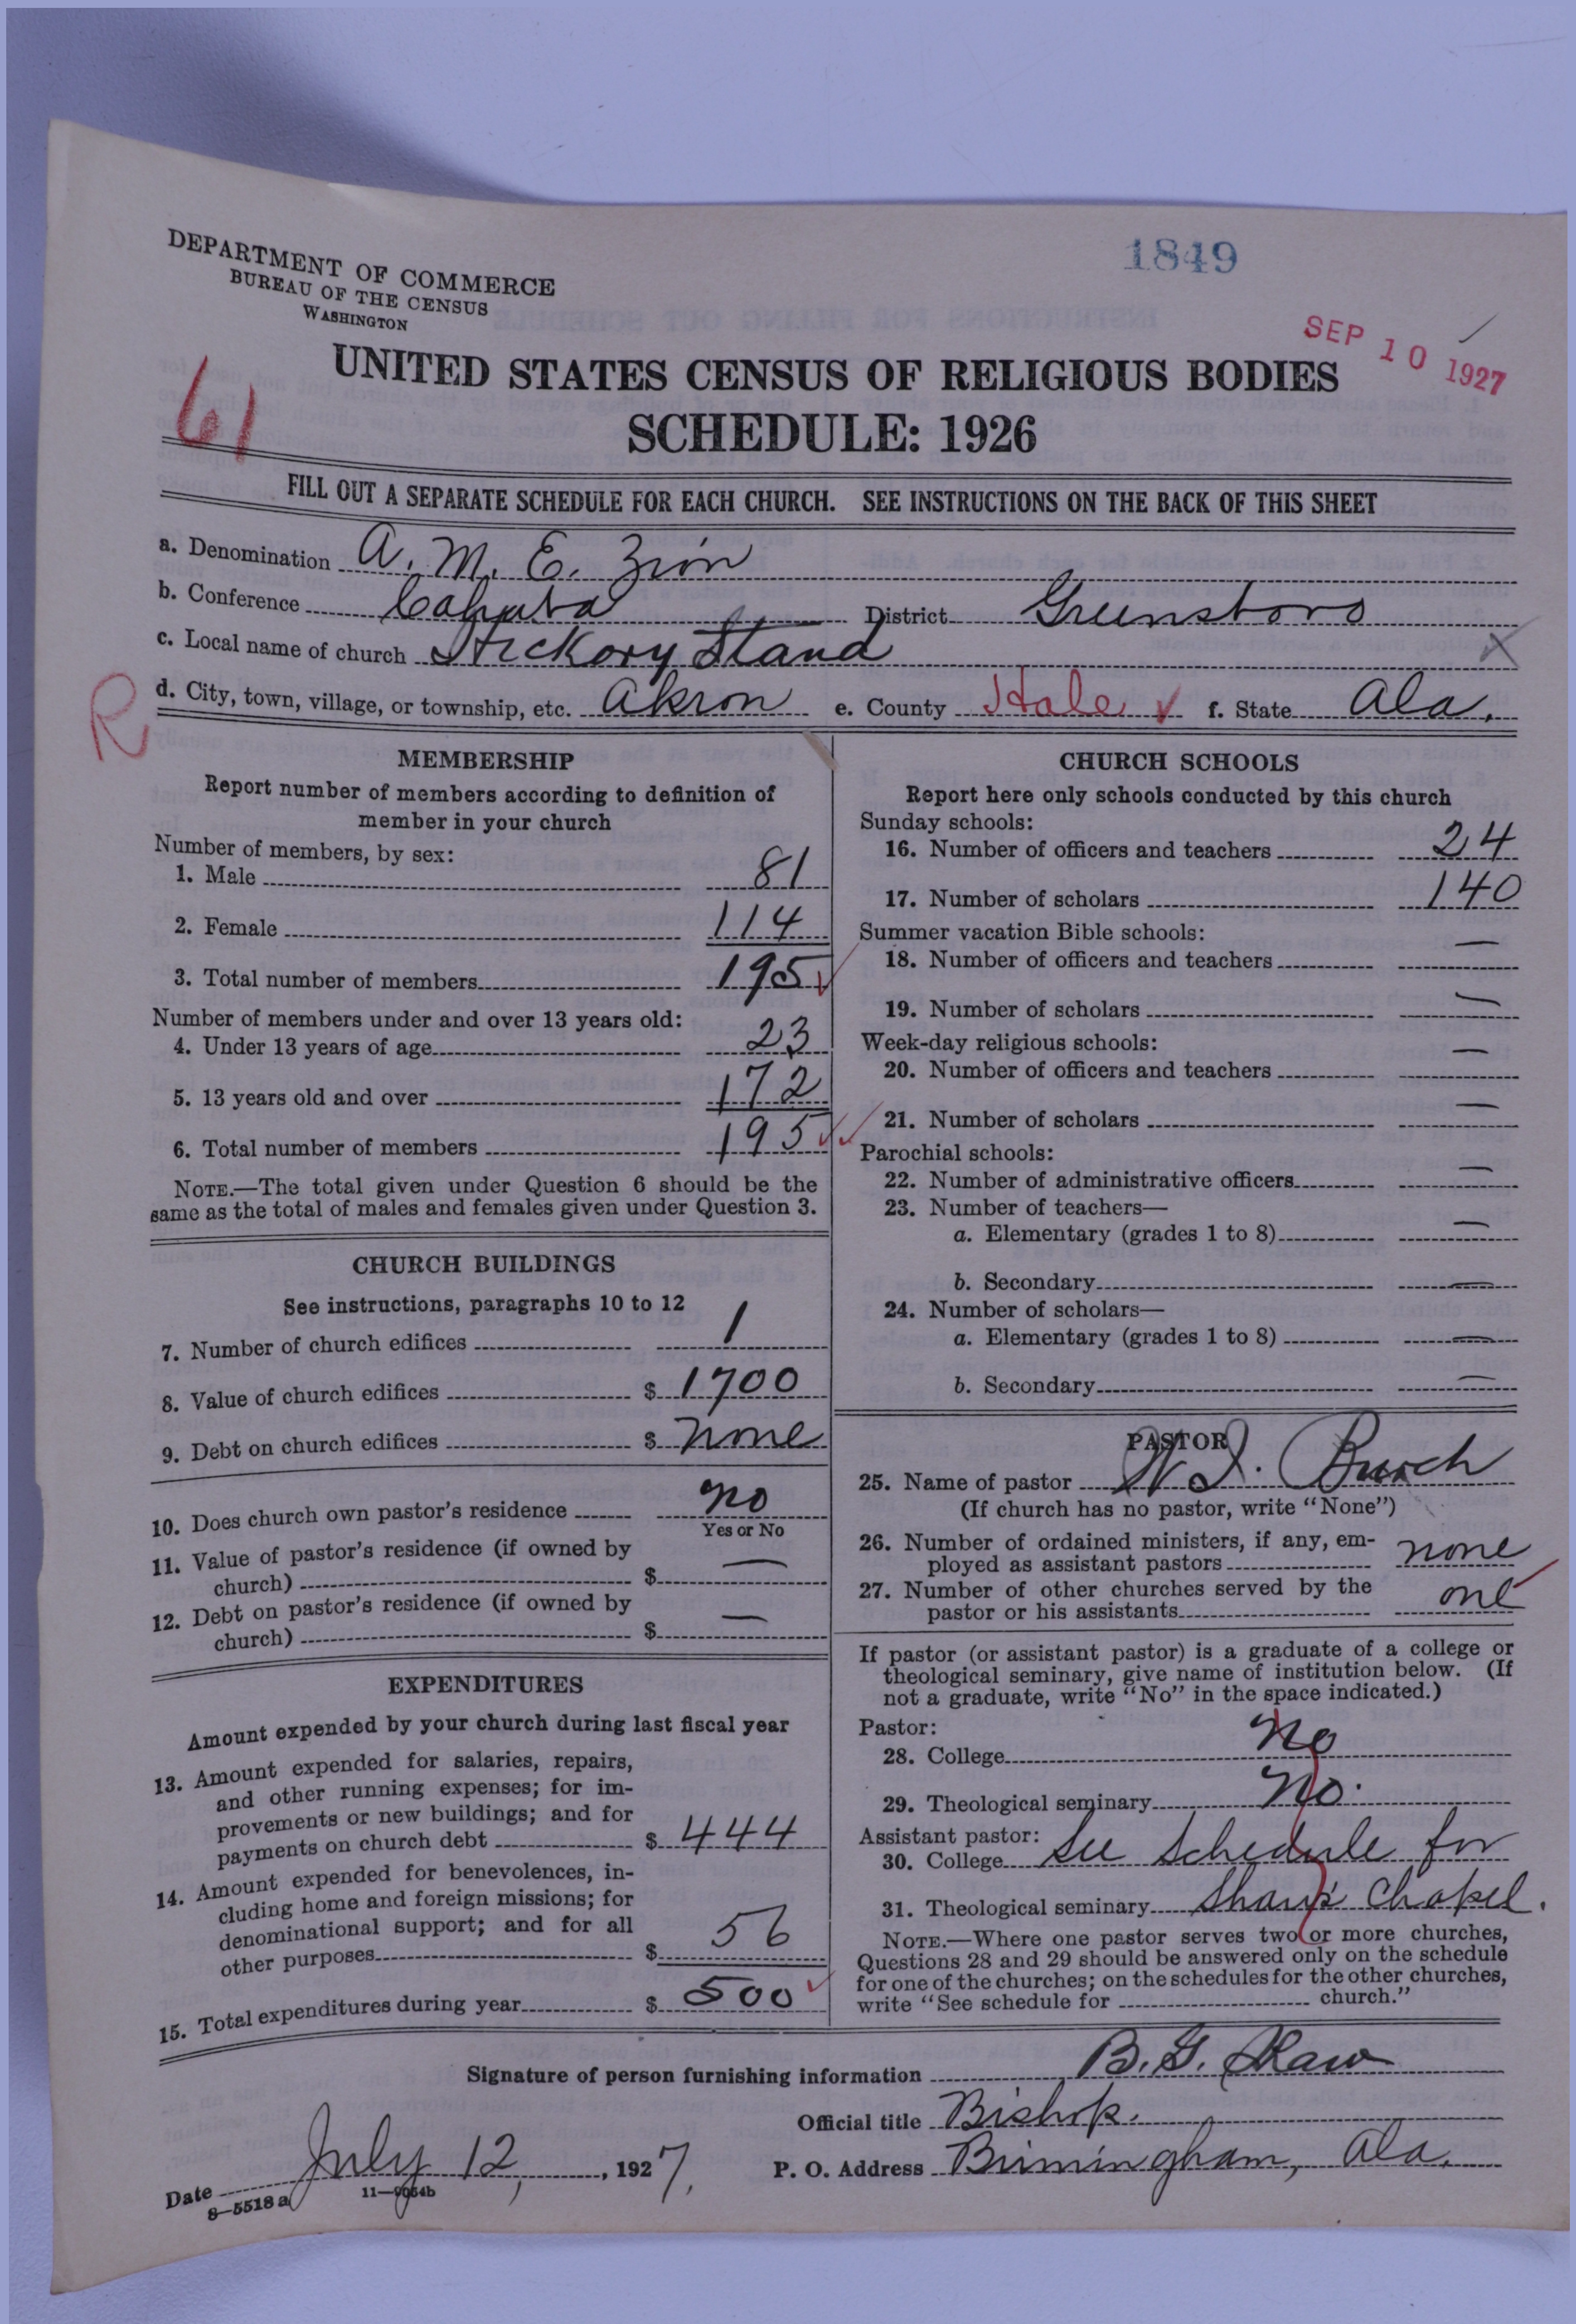 1849
DEPARTMENT OF COMMERCE
BUREAU OF THE CENSUS
WASHINGTON
SEP 10 1927
61
UNITED STATES CENSUS OF RELIGIOUS BODIES
SCHEDULE: 1926
FILL OUT A SEPARATE SCHEDULE FOR EACH CHURCH. SEE INSTRUCTIONS ON THE BACK OF THIS SHEET
a. Denomination A. M. E. Zion
b. Conference Cahaba District Greensboro
c. Local name of church Hickory Stand
R
d. City, town, village, or township, etc. Akron e. County Hale f. State Ala.
MEMBERSHIP
Report number of members according to definition of
member in your church
Number of members, by sex:
1. Male 81
2. Female 114
3. Total number of members 195
Number of members under and over 13 years old:
4. Under 13 years of age 23
5. 13 years old and over 172
6. Total number of members 195
NOTE.—The total given under Question 6 should be the
same as the total of males and females given under Question 3.
CHURCH BUILDINGS
See instructions, paragraphs 10 to 12
7. Number of church edifices 1
8. Value of church edifices $ 1700
9. Debt on church edifices $ none
10. Does church own pastor's residence no
Yes or No
11. Value of pastor's residence (if owned by
church) $ —
12. Debt on pastor's residence (if owned by
church) $ —
EXPENDITURES
Amount expended by your church during last fiscal year
13. Amount expended for salaries, repairs,
and other running expenses; for im-
provements or new buildings; and for
payments on church debt $ 444
14. Amount expended for benevolences, in-
cluding home and foreign missions; for
denominational support; and for all
other purposes $ 56
15. Total expenditures during year $ 500
CHURCH SCHOOLS
Report here only schools conducted by this church
Sunday schools:
16. Number of officers and teachers 24
17. Number of scholars 140
Summer vacation Bible schools:
18. Number of officers and teachers —
19. Number of scholars —
Week-day religious schools:
20. Number of officers and teachers —
21. Number of scholars —
Parochial schools:
22. Number of administrative officers —
23. Number of teachers—
a. Elementary (grades 1 to 8) —
b. Secondary —
24. Number of scholars—
a. Elementary (grades 1 to 8) —
b. Secondary —
PASTOR
25. Name of pastor W. I. Burch
(If church has no pastor, write "None")
26. Number of ordained ministers, if any, em-
ployed as assistant pastors none
27. Number of other churches served by the
pastor or his assistants one
If pastor (or assistant pastor) is a graduate of a college or
theological seminary, give name of institution below. (If
not a graduate, write "No" in the space indicated.)
Pastor:
28. College No
29. Theological seminary No.
Assistant pastor:
30. College See Schedule for
31. Theological seminary Chapel.
NOTE.—Where one pastor serves two or more churches,
Questions 28 and 29 should be answered only on the schedule
for one of the churches; on the schedules for the other churches,
write "See schedule for church."
Signature of person furnishing information B. G. Shaw
Official title Bishop.
Date July 12, 1927. P. O. Address Birmingham, Ala.
8—5518 a 11—9064b